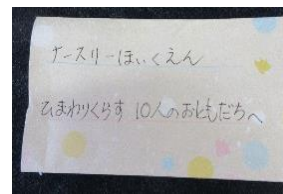 ナースリーほいくえん
ひまわりくらす 10人のおともだちへ